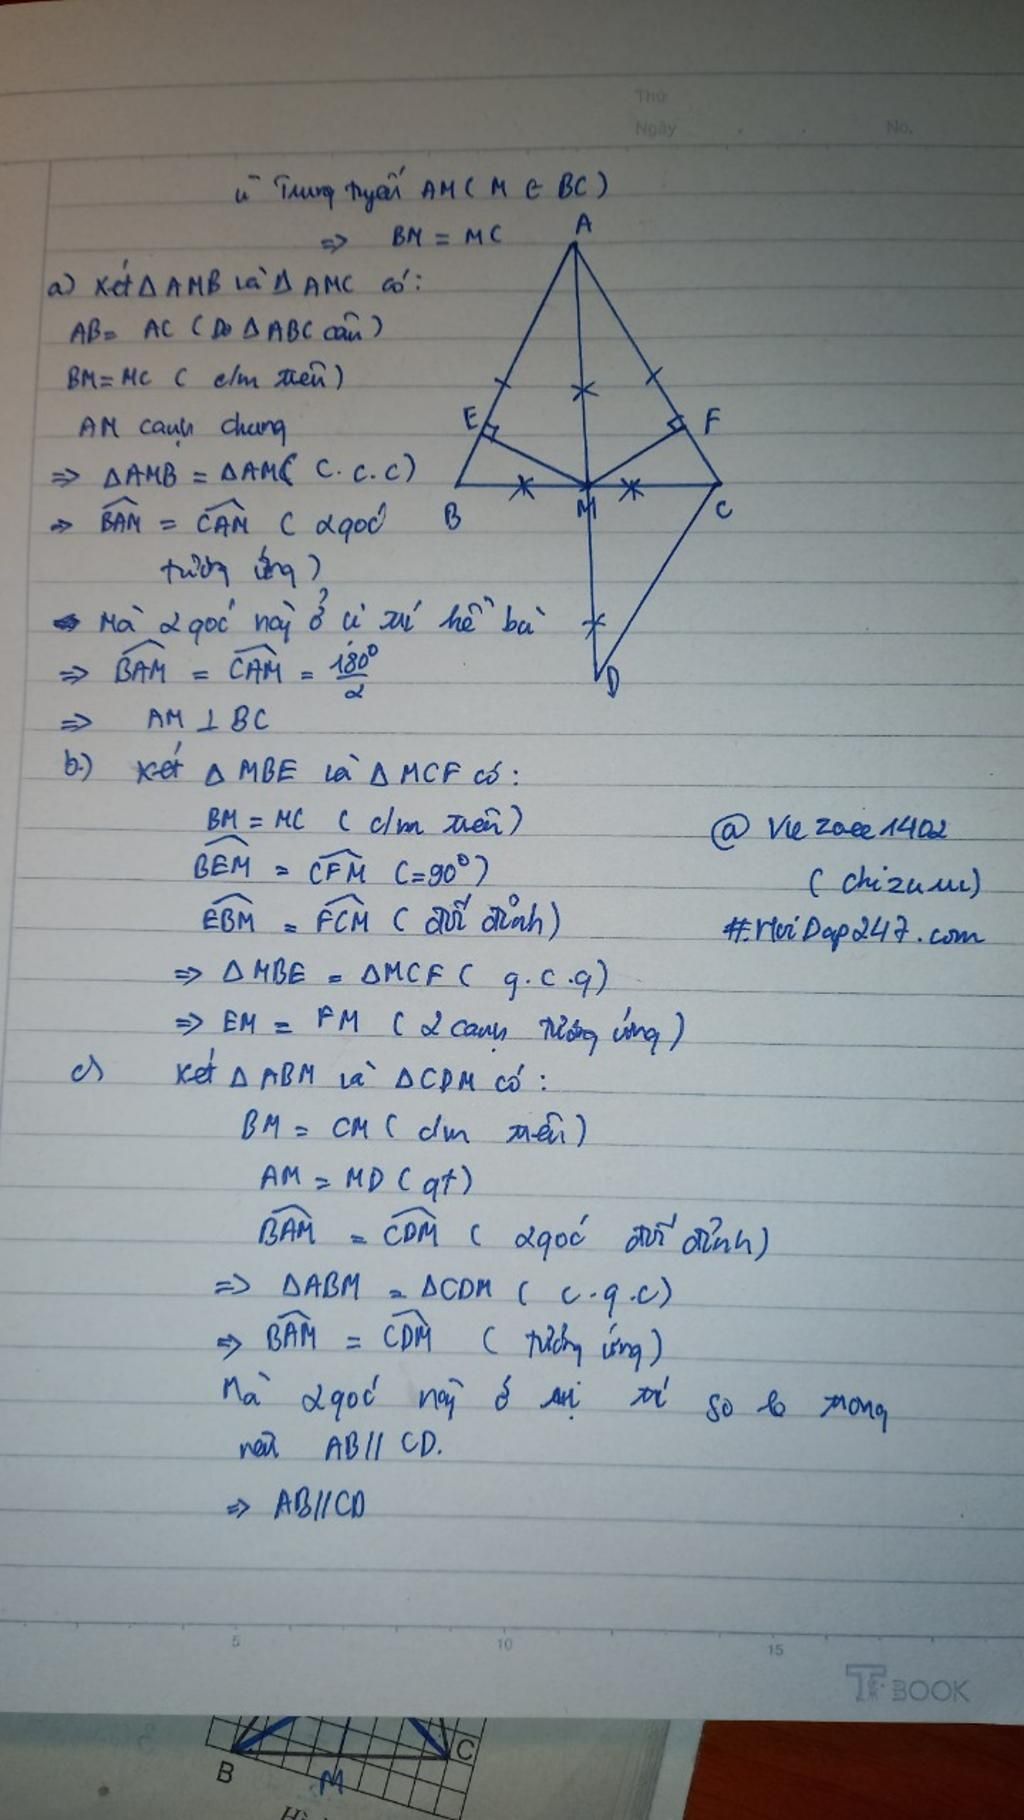 Thứ
Ngày . . No.
Vì Trung tuyến AM ( M ∈ BC )
=> BM = MC
a) Xét Δ AMB và Δ AMC có :
AB = AC ( Do Δ ABC cân )
BM = MC ( c/m trên )
AM cạnh chung
=> ΔAMB = ΔAMC ( c.c.c )
=> BAM = CAM ( 2 góc
tương ứng )
Mà 2 góc này ở vị trí kề bù
=> BAM = CAM = 180°/2
=> AM ⊥ BC
A
E
F
B
M
C
D
b.) Xét Δ MBE và Δ MCF có :
BM = MC ( c/m trên )
BEM = CFM ( = 90° )
EBM = FCM ( đối đỉnh )
=> Δ MBE = ΔMCF ( g.c.g )
=> EM = FM ( 2 cạnh tương ứng )
@ Viezaee1402
( chizuu )
#.HoiDap247.com
c) Xét Δ ABM và ΔCDM có :
BM = CM ( c/m trên )
AM = MD ( gt )
BAM = CDM ( 2 góc đối đỉnh )
=> ΔABM = ΔCDM ( c.g.c )
=> BAM = CDM ( tương ứng )
Mà 2 góc này ở vị trí so le trong
nên AB // CD.
=> AB // CD
5 10 15
BOOK
B
M
C